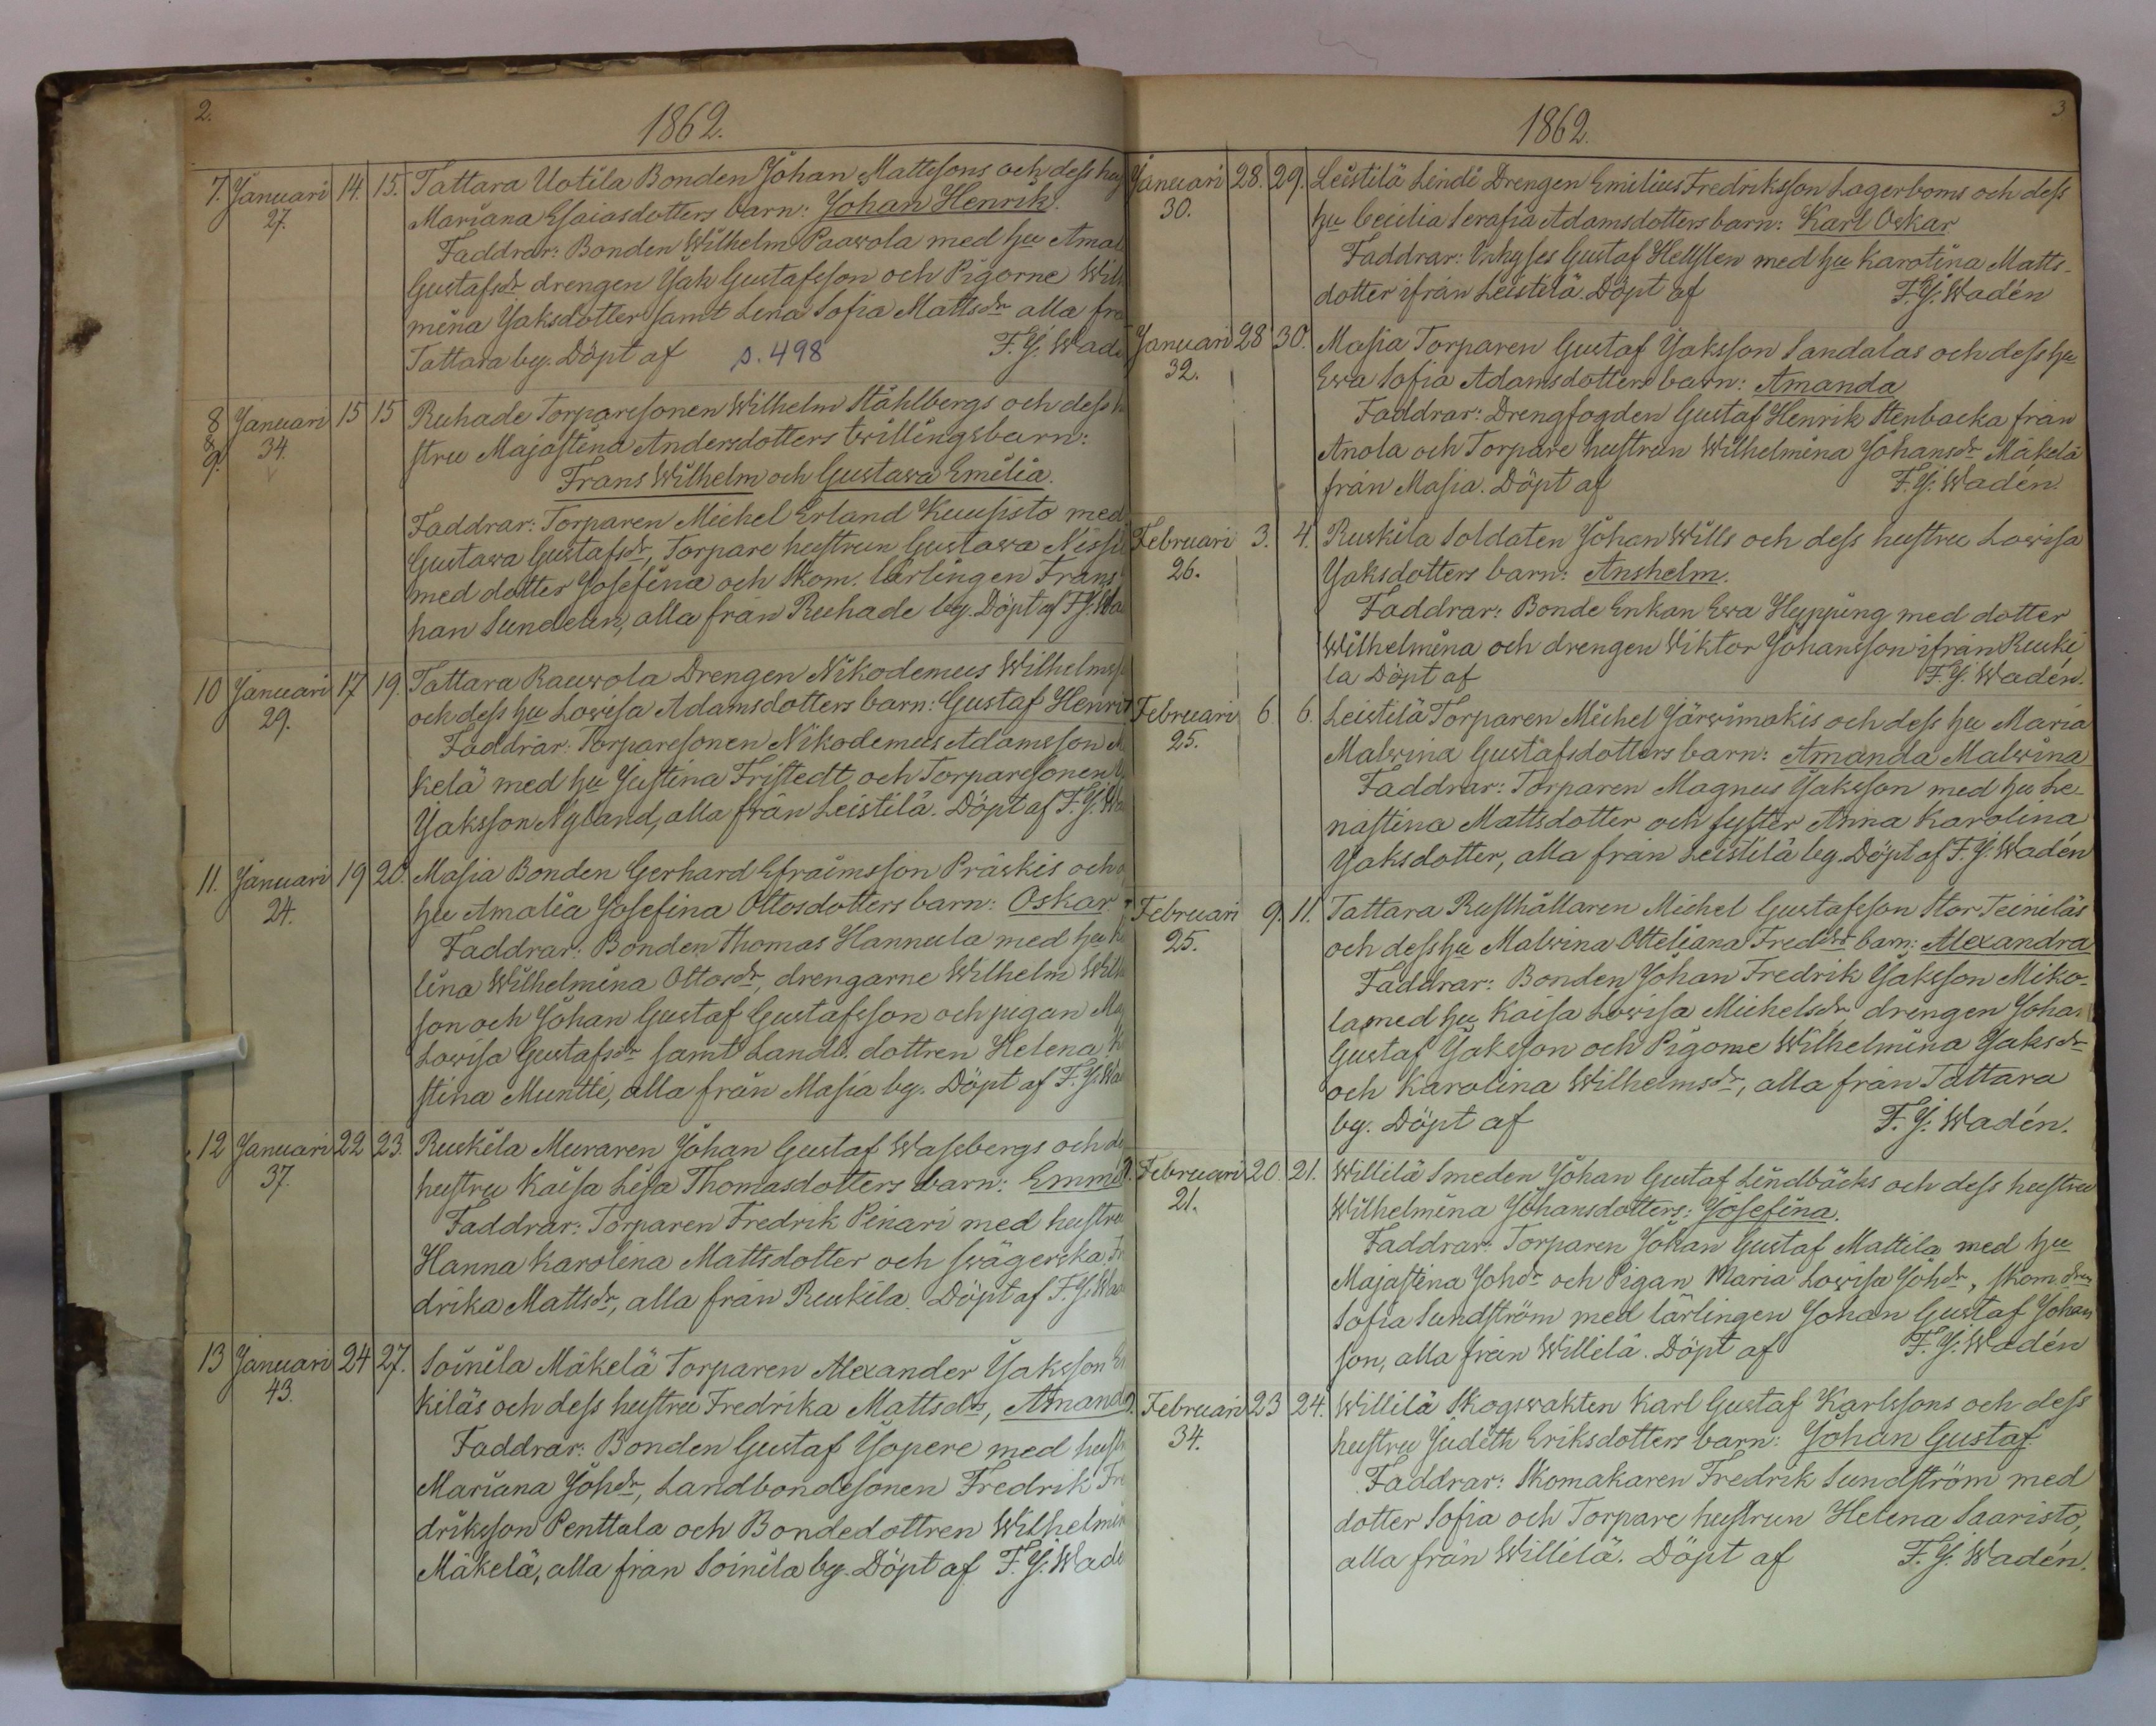 2.
1862.
7. Januari 14. 15. Tattara Uotila Bonden Johan Mattssons och dess
27. Mariana Esaiasdotters barn: Johan Henrik.
Faddrar: Bonden Wilhelm Paawola med hu
Gustafsdr drengen Jak Gustafsson och Pigorne
mina Jaksdotter samt Lena Sofia Mattsdr alla
Tattara by. Döpt af s. 498 F. J.
8 Januari 15 15 Ruhade Torparesonen Wilhelm Ståhlbergs och dess
& 34.
9. stru Majastina Andersdotters twillingsbarn:
Frans Wilhelm och Gustawa Emilia.
Faddrar: Torparen Michel Erland Kuusisto med
Gustawa Gustafsdr, Torpare hustrun Gustawa
med dotter Josefina och Skom. lärlingen Frans
han Sundelin, alla från Ruhade by. Döpt af F. J.
10 Januari 17 19. Tattara Rauwola Drengen Nikodemus
29. och dess hu Lowisa Adamsdotters barn: Gustaf
Faddrar: Torparesonen Nikodemus Adamsson
kelä med hu Justina Fristedt och Torparesonen
Jaksson Nyland, alla från Leistilä. Döpt af F. J.
11. Januari 19 20. Masia Bonden Gerhard Efraimsson Präskis och
24. hu Amalia Josefina Ottosdotters barn: Oskar
Faddrar: Bonden Thomas Hannula med hu
lina Wilhelmina Ottosdr, drengarne Wilhelm
son och Johan Gustaf Gustafsson och pigan
Lowisa Gustafsdr samt Landb. dottren Helena
stina Muntti, alla från Masia by. Döpt af F. J.
12 Januari 22 23. Ruskila Muraren Johan Gustaf Wasebergs och
37. hustru Kaisa Lisa Thomasdotters barn:
Faddrar: Torparen Fredrik Pinari med hustru
Hanna Karolina Mattsdotter och swägerska
drika Mattsdr, alla från Ruskila. Döpt af F. J.
13 Januari 24 27. Soinila Mäkelä Torparen Alexander Jaksson
43. kiläs och dess hustru Fredrika Mattsdrs,
Faddrar: Bonden Gustaf Isopere med
Mariana Johdr, Landbondesonen Fredrik
driksson Penttala och Bondedottren
Mäkelä, alla från Soinila by. Döpt af F. J.
3
1862.
Januari 28. 29. Leistilä Lindi Drengen Emilius Fredriksson Lagerboms och dess
30. hu Cecilia Serafia Adamsdotters barn: Karl Oskar
Faddrar: Gustaf Hellsten med hu Karolina Matts-
dotter ifrån Leistilä. Döpt af F. J. Wadén
Januari 28 30. Masia Torparen Gustaf Jaksson Sandalas och dess hu
32. Ewa Sofia Adamsdotters barn: Amanda
Faddrar: Drengfogden Gustaf Henrik Stenbacka från
Anola och Torpare hustrun Wilhelmina Johansdr Mäkelä
från Masia. Döpt af F. J. Wadén.
Februari 3. 4. Ruskila Soldaten Johan Wills och dess hustru Lowisa
26. Jaksdotters barn: Anshelm.
Faddrar: Bonde Enkan Ewa Hypping med dotter
Wilhelmina och drengen Wiktor Johansson ifrån Ruski
la Döpt af F. J. Wadén.
Februari 6. 6. Leistilä Torparen Michel Järwimäkis och dess hu Maria
25. Malwina Gustafsdotters barn: Amanda Malwina
Faddrar: Torparen Magnus Jaksson med hu Le-
nastina Mattsdotter och syster Anna Karolina
Jaksdotter, alla från Leistilä by. Döpt af F. J. Wadén
Februari 9. 11. Tattara Rusthållaren Michel Gustafsson Stor Teiniläs
25. och dess hu Malwina Otteliana Fredsdrs barn: Alexandra
Faddrar: Bonden Johan Fredrik Jaksson Miko-
la med hu Kaisa Lowisa Michelsdr drengen Johan
Gustaf Jaksson och Pigorne Wilhelmina Jaksdr
och Karolina Wilhelmsdr, alla från Tattara
by. Döpt af F. J. Wadén.
Februari 20. 21. Willilä Smeden Johan Gustaf Lindbäcks och dess hustru
21. Wilhelmina Johansdotters: Josefina.
Faddrar: Torparen Johan Gustaf Mattila med hu
Majastina Johdr och Pigan Maria Lowisa Johdr, Skom.
Sofia Sundström med lärlingen Johan Gustaf Johans
son, alla från Willilä. Döpt af F. J. Wadén
Februari 23 24. Willilä Skogswakten Karl Gustaf Karlssons och dess
34. hustru Judith Eriksdotters barn: Johan Gustaf.
Faddrar: Skomakaren Fredrik Sundström med
dotter Sofia och Torpare hustrun Helena Saaristo,
alla från Willilä. Döpt af F. J. Wadén.